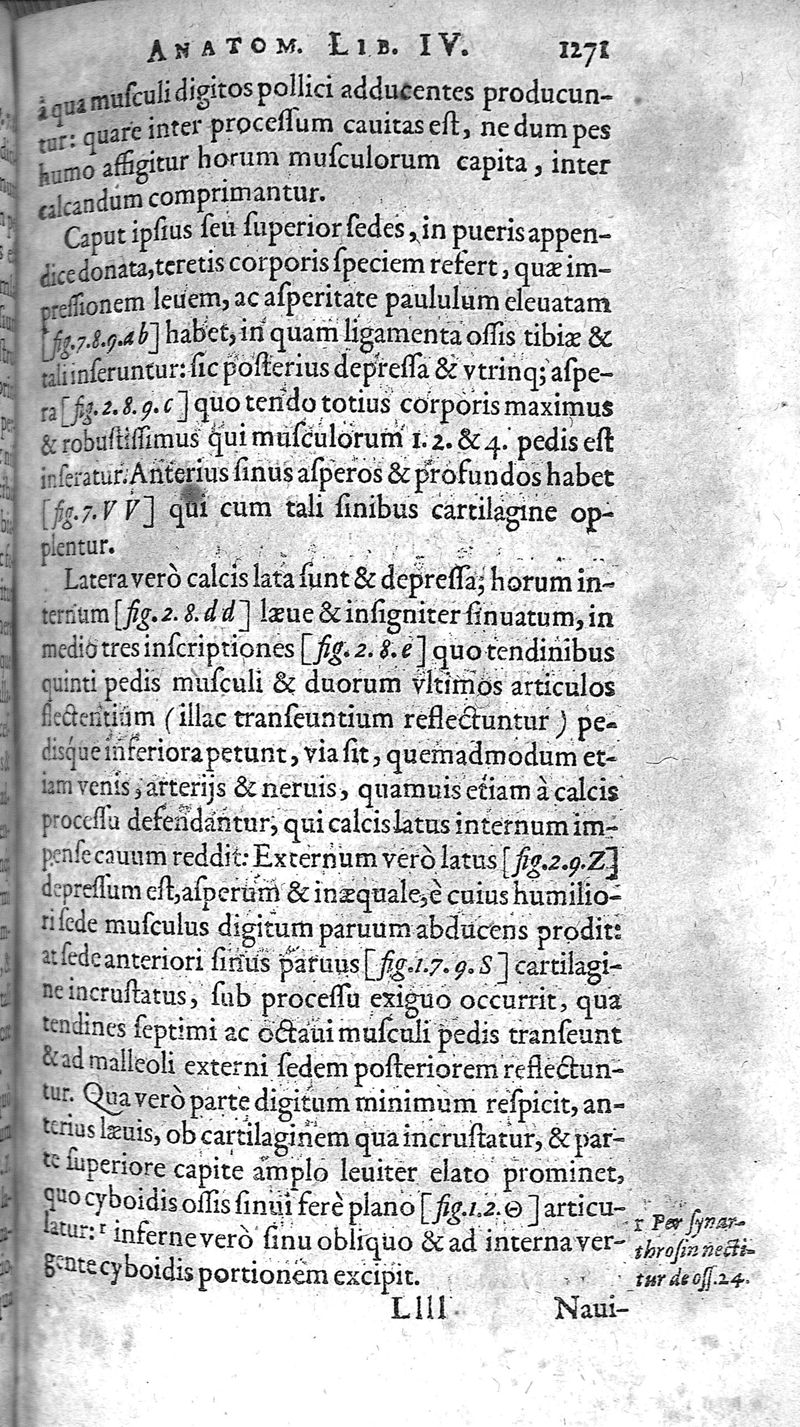 ANATOM. LIB. IV. 1271
à qua muſculi digitos pollici adducentes producun-
tur: quare inter proceſſum cauitas eſt, ne dum pes
humo affigitur horum muſculorum capita, inter
calcandum comprimantur.
Caput ipſius ſeu ſuperior ſedes, in pueris appen-
dice donata, teretis corporis ſpeciem refert, quæ im-
preſſionem leuem, ac aſperitate paululum eleuatam
[fig.7.8.9.ab] habet, in quam ligamenta oſſis tibiæ &
tali inſeruntur: ſic poſterius depreſſa & vtrinq; aſpe-
ra [fig.2.8.9.c] quo tendo totius corporis maximus
& robuſtiſſimus qui muſculorum 1.2. & 4. pedis eſt
inſeratur. Anterius ſinus aſperos & profundos habet
[fig.7.V V] qui cum tali ſinibus cartilagine op-
plentur.
Latera verò calcis lata ſunt & depreſſa; horum in-
ternum [fig.2.8.dd] læue & inſigniter ſinuatum, in
medio tres inſcriptiones [fig.2.8.e] quo tendinibus
quinti pedis muſculi & duorum vltimos articulos
flectentium (illac tranſeuntium reflectuntur) pe-
disque inferiora petunt, via ſit, quemadmodum et-
iam venis, arterijs & neruis, quamuis etiam à calcis
proceſſu defendantur, qui calcis latus internum im-
penſe cauum reddit: Externum verò latus [fig.2.9.Z]
depreſſum eſt, aſperum & inæquale, è cuius humilio-
ri ſede muſculus digitum paruum abducens prodit:
at ſede anteriori ſinus paruus [fig.1.7.9.S] cartilagi-
ne incruſtatus, ſub proceſſu exiguo occurrit, qua
tendines ſeptimi ac octaui muſculi pedis tranſeunt
& ad malleoli externi ſedem poſteriorem reflectun-
tur. Qua verò parte digitum minimum reſpicit, an-
terius læuis, ob cartilaginem qua incruſtatur, & par-
te ſuperiore capite amplo leuiter elato prominet,
quo cyboidis oſſis ſinui ferè plano [fig.1.2.Θ] articu-
latur: r inferne verò ſinu obliquo & ad interna ver-
gente cyboidis portionem excipit.
r Per ſynar-
throſin necti-
tur de oſſ.24.
Llll Naui-